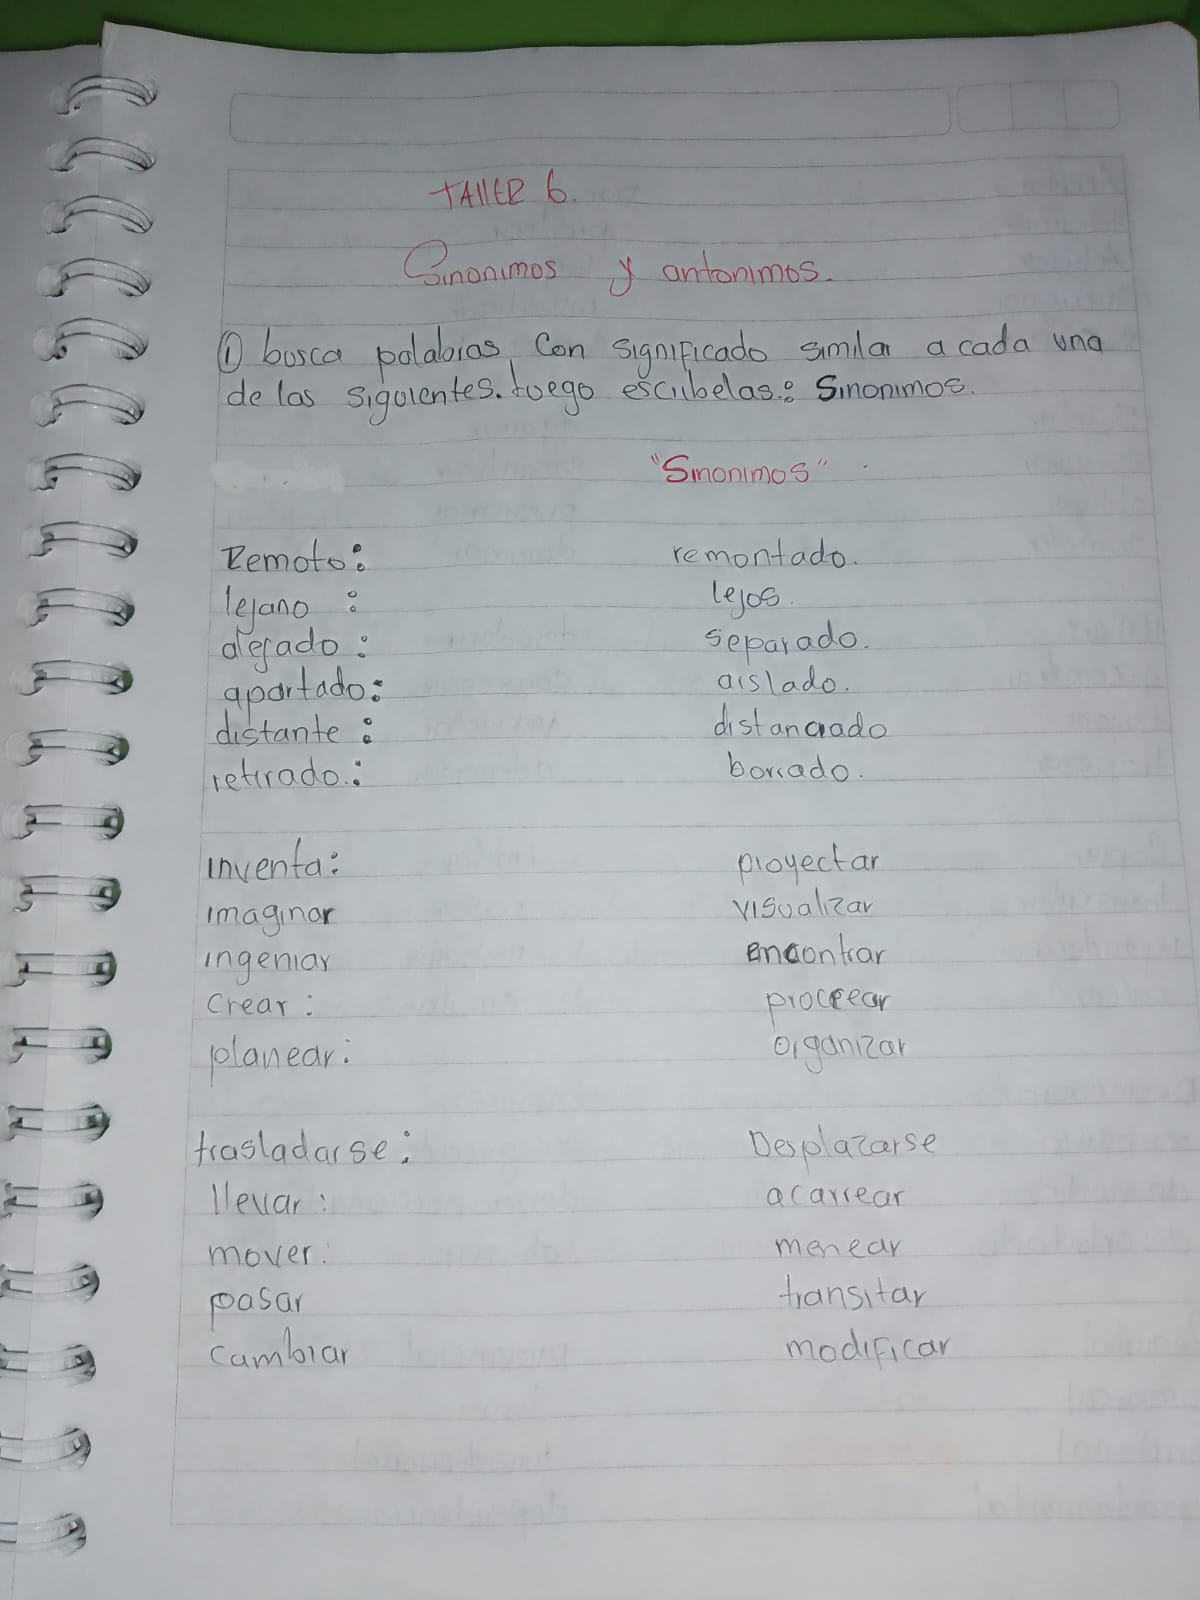 TALLER 6.
Sinonimos y antonimos.
① busca palabras, Con significado similar a cada una
de las siguientes. Luego escribelas: Sinonimos.
"Sinonimos"
Remoto: remontado.
lejano : lejos.
alejado : separado.
apartado: aislado.
distante : distanciado
retirado.: borrado.
inventa: proyectar
imaginar visualizar
ingeniar encontrar
Crear : procrear
planear: organizar
trasladarse: Desplazarse
llevar : acarrear
mover: menear
pasar transitar
Cambiar modificar